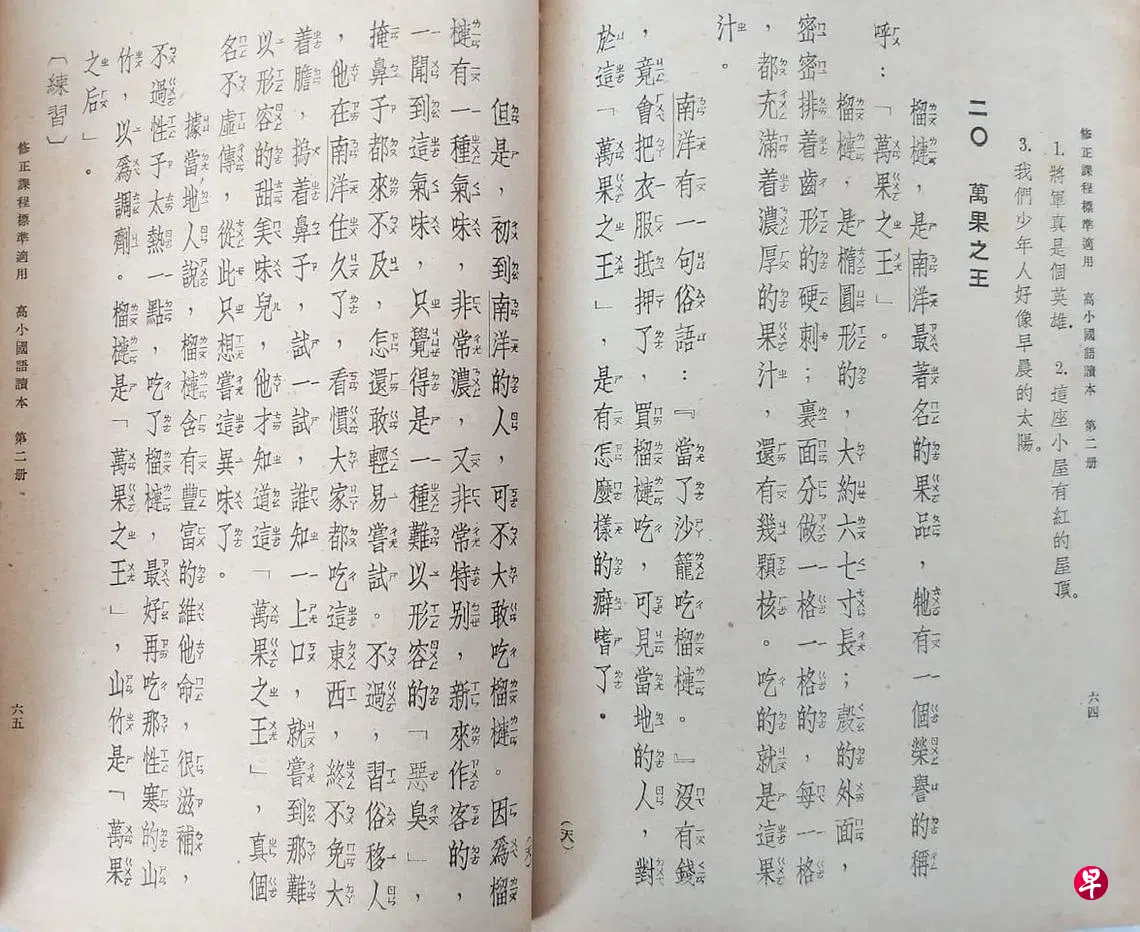 修正課程標準適用　高小國語讀本　第二册　六四
1. 將軍真是個英雄.　2. 這座小屋有紅的屋頂。
3. 我們少年人好像早晨的太陽。
二〇　萬果之王
榴槤，是南洋最著名的果品，牠有一個榮譽的稱
呼：「萬果之王」。
榴槤，是橢圓形的，大約六七寸長；殼的外面，
密密排着齒形的硬刺；裏面分做一格一格的，每一格
，都充滿着濃厚的果汁，還有幾顆核。吃的就是這果
汁。
南洋有一句俗語：『當了沙籠吃榴槤。』沒有錢
，竟會把衣服抵押了，買榴槤吃，可見當地的人，對
於這「萬果之王」，是有怎麼樣的癖嗜了．
（天）
但是，初到南洋的人，可不大敢吃榴槤。因爲榴
槤有一種氣味，非常濃，又非常特别，新來作客的，
一聞到這氣味，只覺得是一種難以形容的「惡臭」，
掩鼻子都來不及，怎還敢輕易嘗試。不過，習俗移人
，他在南洋住久了，看慣大家都吃這東西，終不免大
着膽，摀着鼻子，試一試，誰知一上口，就嘗到那難
以形容的甜美味兒，他才知道這「萬果之王」，真個
名不虛傳，從此只想嘗這異味了。
據當地人說，榴槤含有豐富的維他命，很滋補，
不過性子太熱一點，吃了榴槤，最好再吃那性寒的山
竹，以爲調劑。榴槤是「萬果之王」，山竹是「萬果
之后」。
〔練習〕
修正課程標準適用　高小國語讀本　第二册　六五
早